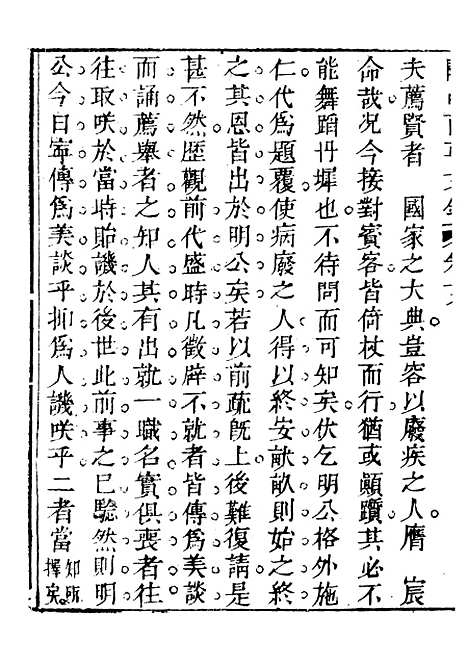 夫薦賢者　國家之大典豈容以廢疾之人膺　宸
命哉况今接對賓客皆倚杖而行猶或顛躓其必不
能舞蹈丹墀也不待問而可知矣伏乞明公格外施
仁代爲題覆使病廢之人得以終安畝畝則始之終
之其恩皆出於明公矣若以前疏旣上後難復請是
甚不然歷觀前代盛時凡徵辟不就者皆傳爲美談
而誦薦舉者之知人其有出就一職名實俱喪者往
往取咲於當時貽譏於後世此前事之已驗然則明
公今日寧傳爲美談乎抑爲人譏咲乎二者當知所擇矣